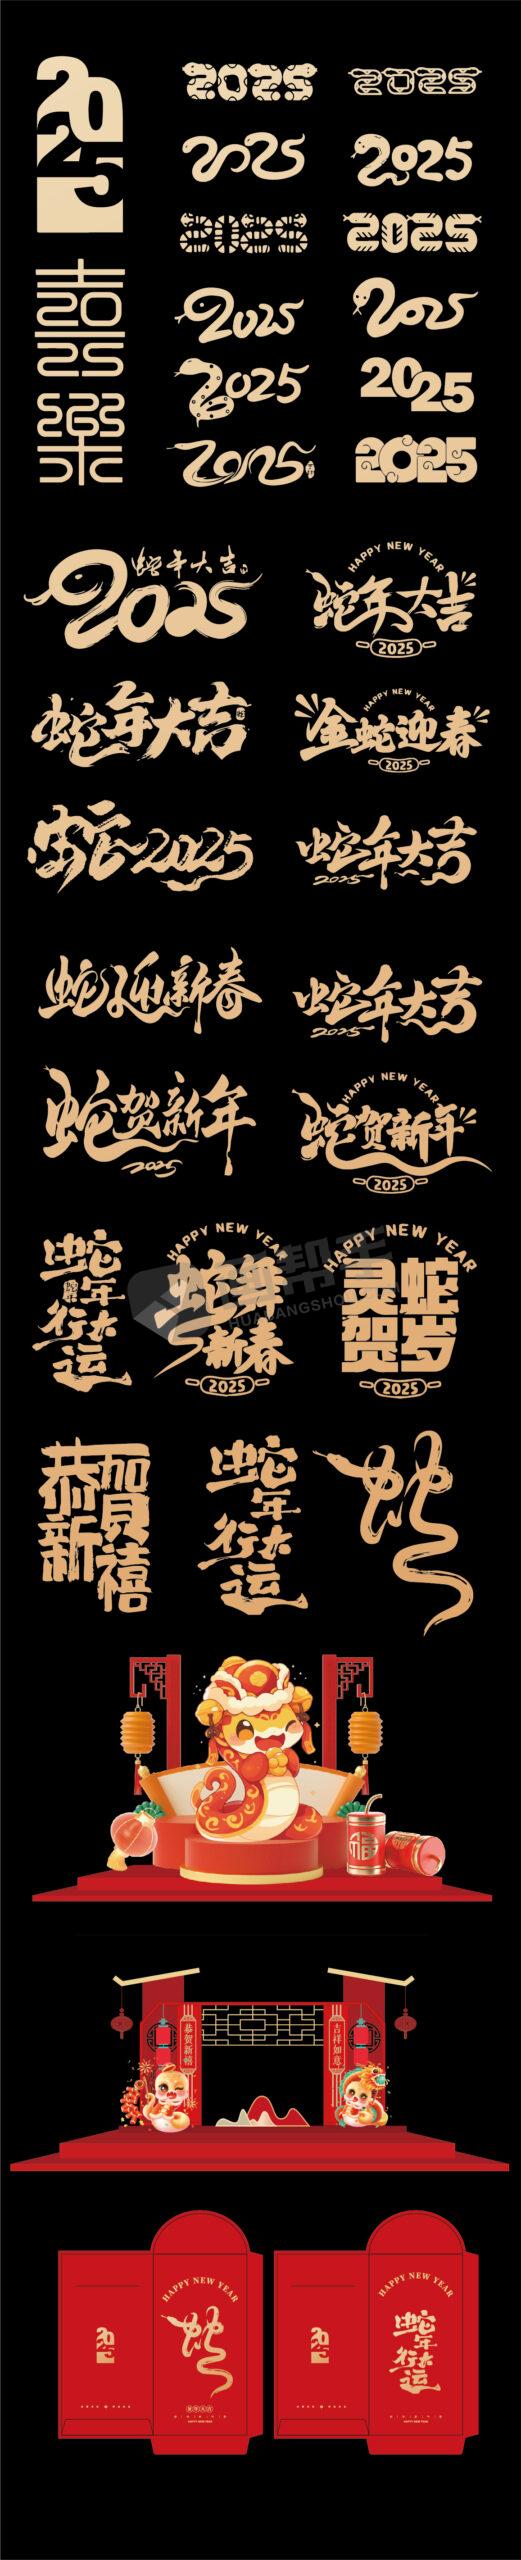 2025
2025
2025
2025
2025
2025
2025
2025
2025
2025
2025
2025
2025
2025
蛇年大吉
2025
HAPPY NEW YEAR
蛇年大吉
2025
蛇年大吉
HAPPY NEW YEAR
金蛇迎春
2025
蛇2025
蛇年大吉
2025
蛇迎新春
蛇年大吉
2025
蛇贺新年
2025
HAPPY NEW YEAR
蛇贺新年
2025
蛇年
行大运
HAPPY NEW YEAR
蛇舞
新春
2025
HAPPY NEW YEAR
蛇岁
灵贺
2025
恭賀
新禧
蛇年
行大运
蛇
福
恭贺新禧
吉祥如意
2025
HAPPY NEW YEAR
蛇
HAPPY NEW YEAR
2025
HAPPY NEW YEAR
蛇年
行大运
HAPPY NEW YEAR